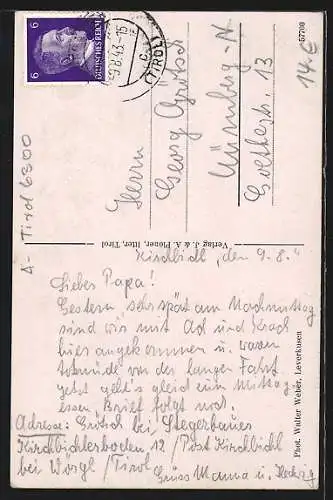 6
DEUTSCHES REICH
6
-9.8.43-15
(TIROL)
Herrn
Georg Grötsch
Nürnberg-N
Goethestr. 13
14€
57700
A- Tirol 6300
Verlag J. & A. Ploner, Itter, Tirol
Phot. Walter Weber, Leverkusen
Kirchbichl, den 9.8.
Lieber Papa!
Gestern sehr spät am Nachmittag
sind wir mit Ach und Krach
hier angekommen u. waren
totmüde von der langen Fahrt.
Jetzt geht's gleich zum Mittag
essen Brief folgt noch.
Adresse: Grötsch bei Stegerbauer
Kirchbichlerboden 12 / Post Kirchbichl
bei Wörgl / Tirol
Gruss Mama u. Hedwig